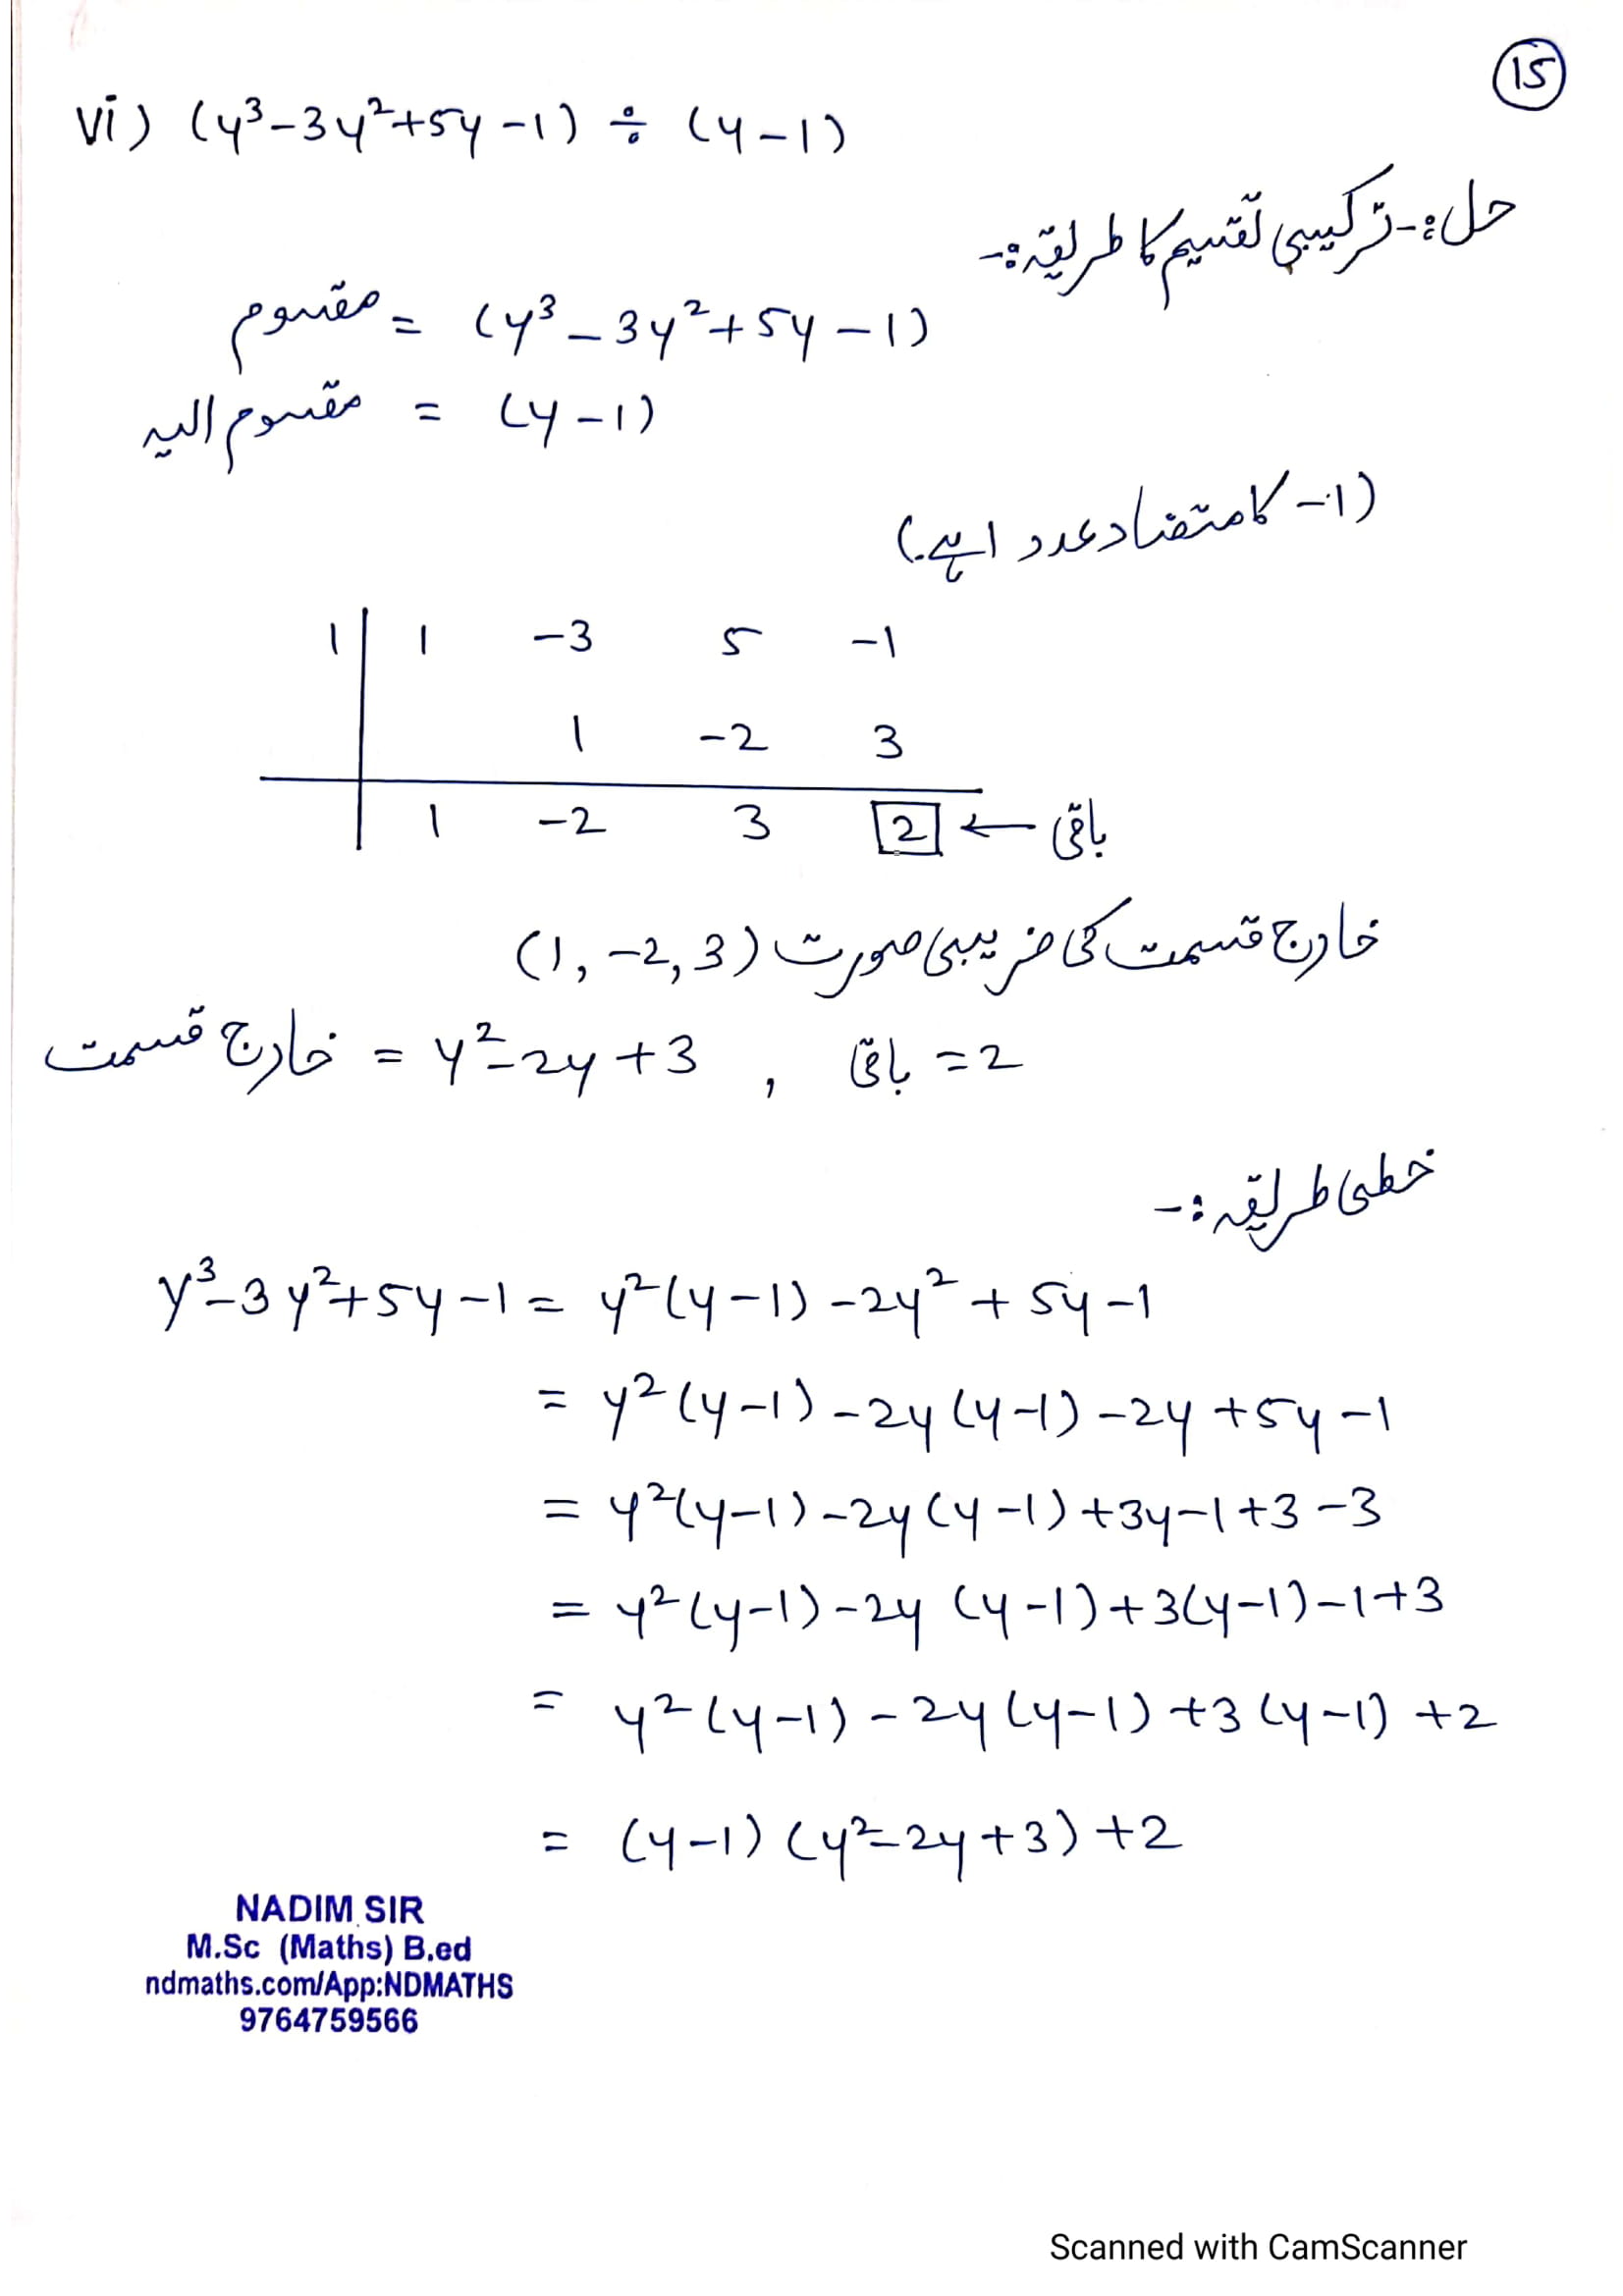 15
vi) (y³-3y²+5y-1) ÷ (y-1)
حل:- ترکیبی تقسیم کا طریقہ:-
مقسوم = (y³-3y²+5y-1)
مقسوم الیہ = (y-1)
(-1 کا متضاد عدد 1 ہے.)
1 | 1 -3 5 -1
1 -2 3
1 -2 3 2 ← باقی
خارج قسمت کی ضریبی صورت (1, -2, 3)
خارج قسمت = y²-2y+3 , باقی = 2
خطی طریقہ:-
y³-3y²+5y-1 = y²(y-1)-2y²+5y-1
= y²(y-1)-2y(y-1)-2y+5y-1
= y²(y-1)-2y(y-1)+3y-1+3-3
= y²(y-1)-2y(y-1)+3(y-1)-1+3
= y²(y-1)-2y(y-1)+3(y-1)+2
= (y-1)(y²-2y+3)+2
NADIM SIR
M.Sc (Maths) B.ed
ndmaths.com/App:NDMATHS
9764759566
Scanned with CamScanner